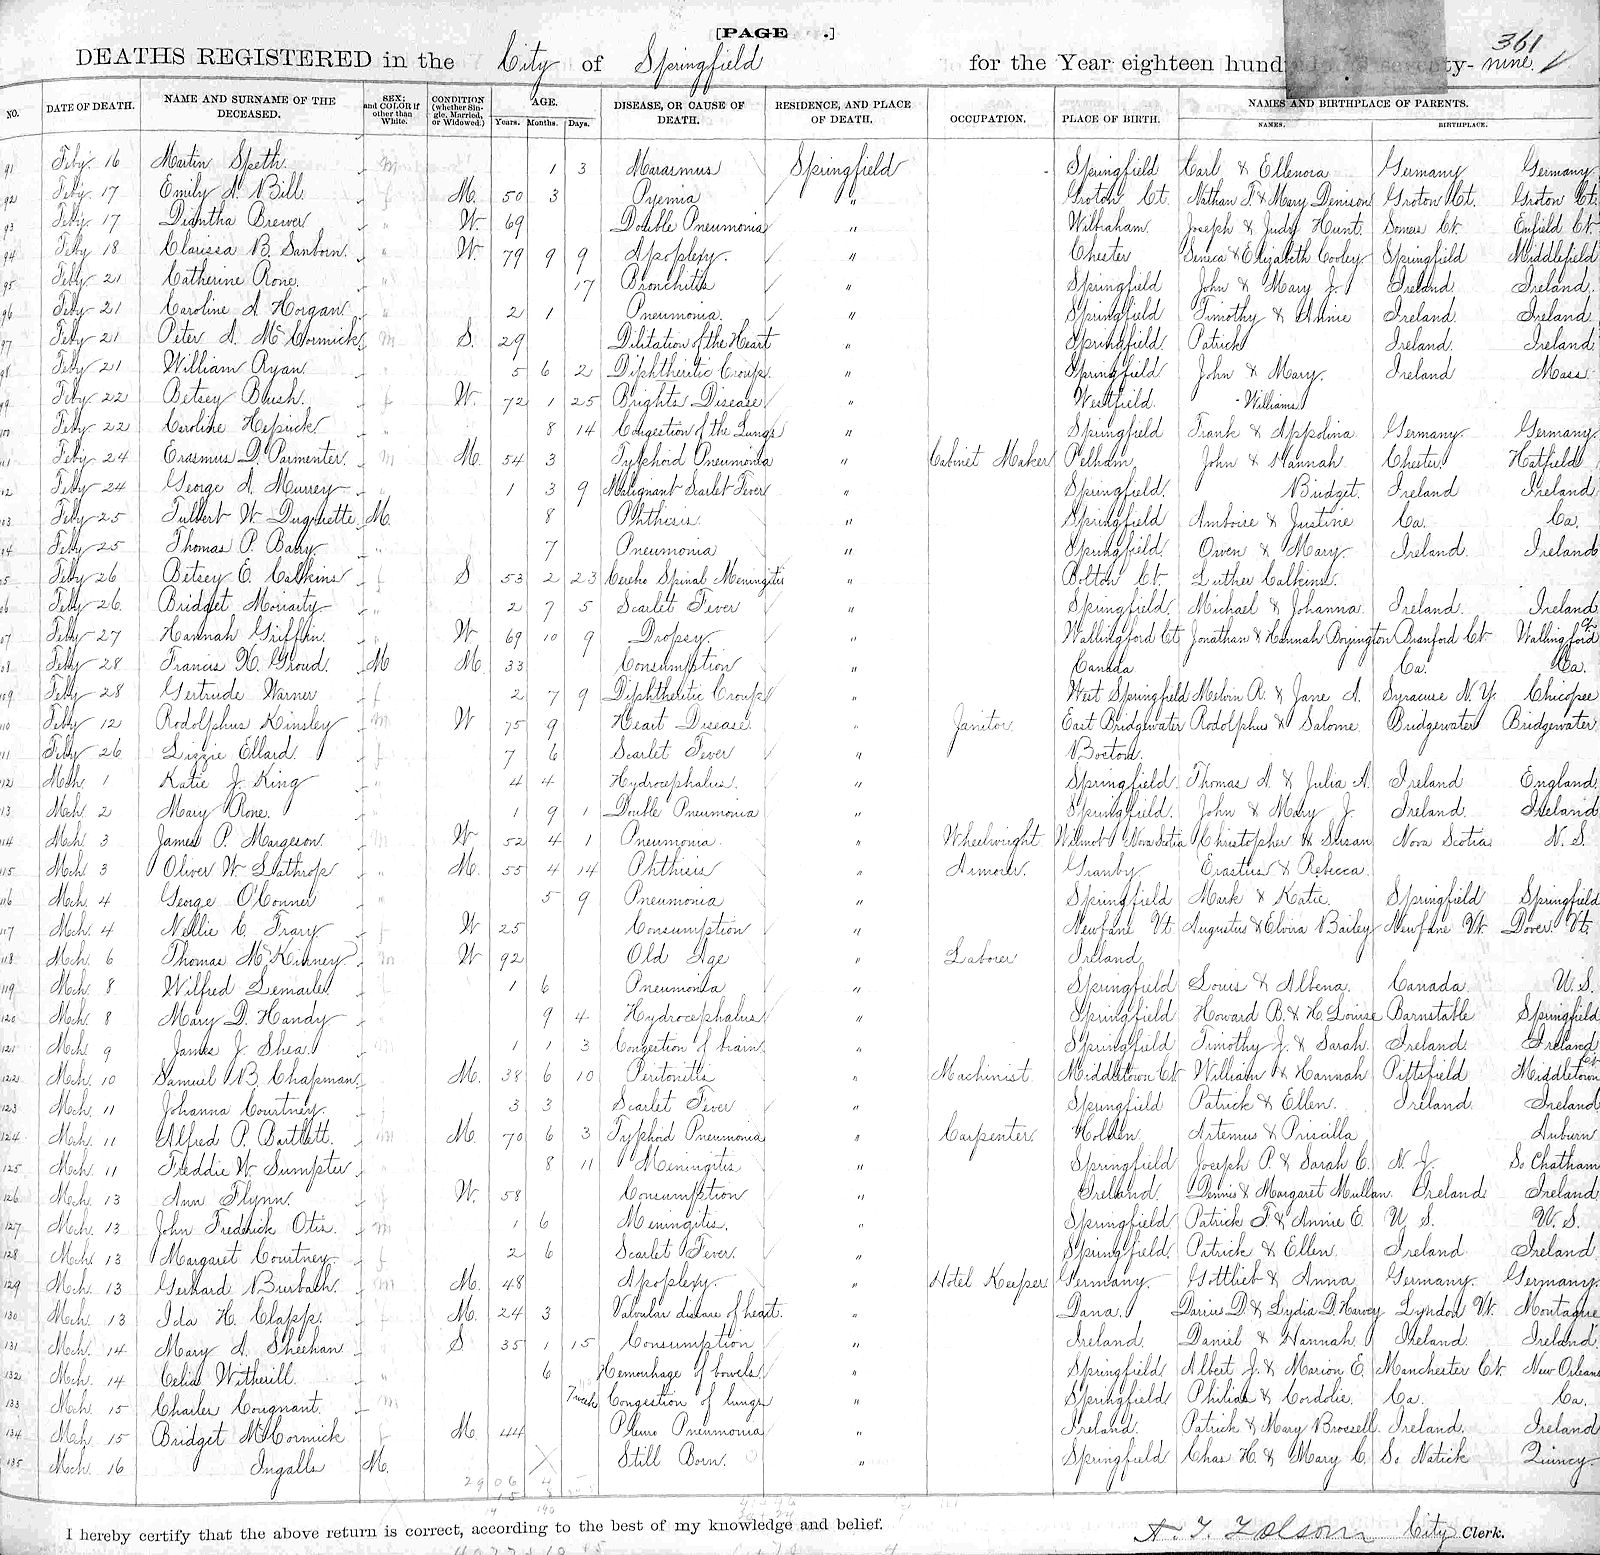 [PAGE .]
361
DEATHS REGISTERED in the City of Springfield for the Year eighteen hund seventy-nine.
NO. DATE OF DEATH. NAME AND SURNAME OF THE DECEASED. SEX; and COLOR if other than White. CONDITION (whether Single, Married, or Widowed.) AGE. Years. Months. Days. DISEASE, OR CAUSE OF DEATH. RESIDENCE, AND PLACE OF DEATH. OCCUPATION. PLACE OF BIRTH. NAMES AND BIRTHPLACE OF PARENTS. NAMES. BIRTHPLACE.
91 Feby. 16 Martin Speth m 1 3 Marasmus Springfield Springfield Carl & Ellenora Germany Germany
92 Feby. 17 Emily A. Bill f M. 50 3 Pyemia " Groton Ct. Nathan F & Mary Denison Groton Ct. Groton Ct.
93 Feby. 17 Brewer " W. 69 Double Pneumonia " Wilbraham. Joseph & Judy Hunt. Somers Ct. Enfield Ct.
94 Feby 18 Clarissa B. Sanborn. " W. 79 9 9 Apoplexy. " Chester Seneca & Elizabeth Cooley Springfield Middlefield
95 Feby 21 Catherine Rone. " 17 Bronchitis " Springfield John & Mary J. Ireland Ireland.
96 Feby 21 Caroline A Horgan " 2 1 Pneumonia. " Springfield Timothy & Annie Ireland. Ireland.
97 Feby 21 Peter A. McCormick m S. 29 Dilitation of the Heart " Springfield Patrick Ireland. Ireland.
98 Feby 21 William Ryan. " 5 6 2 Diphtheritic Croup. " Springfield John & Mary. Ireland Mass
99 Feby 22 Betsey Blush. f W. 72 1 25 Brights Disease " Westfield. Williams
100 Feby 22 Caroline " 8 14 Congestion of the Lungs " Springfield Frank & Appolina Germany Germany.
101 Feby 24 Erasmus D. Parmenter. m M. 54 3 Typhoid Pneumonia " Cabinet Maker Pelham John & Hannah Chester Hatfield
102 Feby 24 George A. Murrey " 1 3 9 Malignant Scarlet Fever " Springfield. Bridget. Ireland Ireland
103 Feby 25 W. Duquette M. 8 Phthisis. " Springfield Amboise & Justine Ca. Ca.
104 Feby 25 Thomas P. Barry " 7 Pneumonia " Springfield. Owen & Mary Ireland. Ireland
105 Feby 26 Betsey E. Calkins f S 53 2 23 Cerebo Spinal Meningitis " Bolton Ct. Luther Calkins.
106 Feby 26. Bridget Moriarty " 2 7 5 Scarlet Fever " Springfield. Michael & Johanna Ireland. Ireland
107 Feby 27 Hannah Griffin. " W 69 10 9 Dropsy. " Wallingford Ct. Jonathan & Hannah Boyington Branford Ct Wallingford Ct.
108 Feby 28 Francis X. Giroud. M M. 33 Consumption " Canada Ca. Ca.
109 Feby 28 Gertrude Warner f 2 7 9 Diphtheritic Croup " West Springfield Melvin R. & Jane A. Syracuse N.Y. Chicopee
110 Feby 12 Rodolphus Kinsley m W 75 9 Heart Disease " Janitor. East Bridgewater Rodolphus & Salome Bridgewater Bridgewater
111 Feby 26 Lizzie Ellard. f 7 6 Scarlet Fever " Boston.
112 Mch. 1 Katie J. King " 4 4 Hydrocephalus. " Springfield. Thomas A. & Julia A. Ireland England.
113 Mch. 2 Mary Rone. " 1 9 1 Double Pneumonia " Springfield. John & Mary J. Ireland. Ireland
114 Mch. 3 James P. Margeson. m W 52 4 1 Pneumonia " Wheelwright Wilmot Nova Scotia Christopher & Susan Nova Scotia N. S.
115 Mch. 3 Oliver W. Lathrop " M. 55 4 14 Phthisis " Armorer. Granby Erastus & Rebecca
116 Mch. 4 George O'Conner " 5 9 Pneumonia " Springfield Mark & Katie Springfield Springfield
117 Mch. 4 Nellie E. Frary f W 25 Consumption " Newfane Vt. Augustus & Elvira Bailey Newfane Vt. Dover. Vt.
118 Mch. 6 Thomas McKinney m W 92 Old Age " Laborer Ireland.
119 Mch. 8 Wilfred " 1 6 Pneumonia " Springfield Louis & Albena. Canada U. S.
120 Mch. 8 Mary D. Handy f 9 4 Hydrocephalus " Springfield Howard B. & H. Louise Barnstable Springfield
121 Mch. 9 James J. Shea. m 1 1 3 Congestion of brain. " Springfield Timothy J. & Sarah. Ireland Ireland
122 Mch. 10 Samuel B. Chapman. " M. 38 6 10 Peritonitis " Machinist. Middletown Ct. William & Hannah Pittsfield Middletown Ct.
123 Mch. 11 Johanna Courtney f 3 3 Scarlet Fever " Springfield Patrick & Ellen. Ireland. Ireland
124 Mch. 11 Alfred P. Bartlett. m M. 70 6 3 Typhoid Pneumonia " Carpenter. Holden Artemus & Priscilla Auburn
125 Mch. 11 Freddie W. Sumpter " 8 11 Meningitis " Springfield Joseph P. & Sarah E. N. J. So Chatham
126 Mch. 13 Ann Flynn. f W. 58 Consumption " Ireland. Dennis & Margaret Mullan. Ireland Ireland
127 Mch. 13 John Frederick Otis. m 1 6 Meningitis. " Springfield Patrick F & Annie E. U. S. U. S.
128 Mch. 13 Margaret Courtney f 2 6 Scarlet Fever. " Springfield. Patrick & Ellen. Ireland Ireland
129 Mch. 13 Gerhard Burbach. m M. 48 Apoplexy. " Hotel Keeper Germany Gottlieb & Anna Germany. Germany.
130 Mch. 13 Ida H. Clapp. f M. 24 3 Valvular disease of heart. " Dana. Darius D. & Lydia D Harvey Lyndon Vt. Montague
131 Mch. 14 Mary A. Sheehan " S 35 1 15 Consumption " Ireland. Daniel & Hannah Ireland. Ireland.
132 Mch. 14 Celia Witherill. " 6 Hemorhage of bowels " Springfield Albert J. & Marion E. Manchester Ct. New Orleans
133 Mch. 15 Charles Cougnant. m 7 week Congestion of lungs " Springfield Philias & Cordolie. Ca. Ca.
134 Mch 15 Bridget McCormick f M. 44 Pleuro Pneumonia " Ireland. Patrick & Mary Brossell. Ireland. Ireland
135 Mch. 16 Ingalls M. Still Born. " Springfield Chas H. & Mary C. So Natick Quincy
29 06 4
I hereby certify that the above return is correct, according to the best of my knowledge and belief.
A. T. Folsom City Clerk.